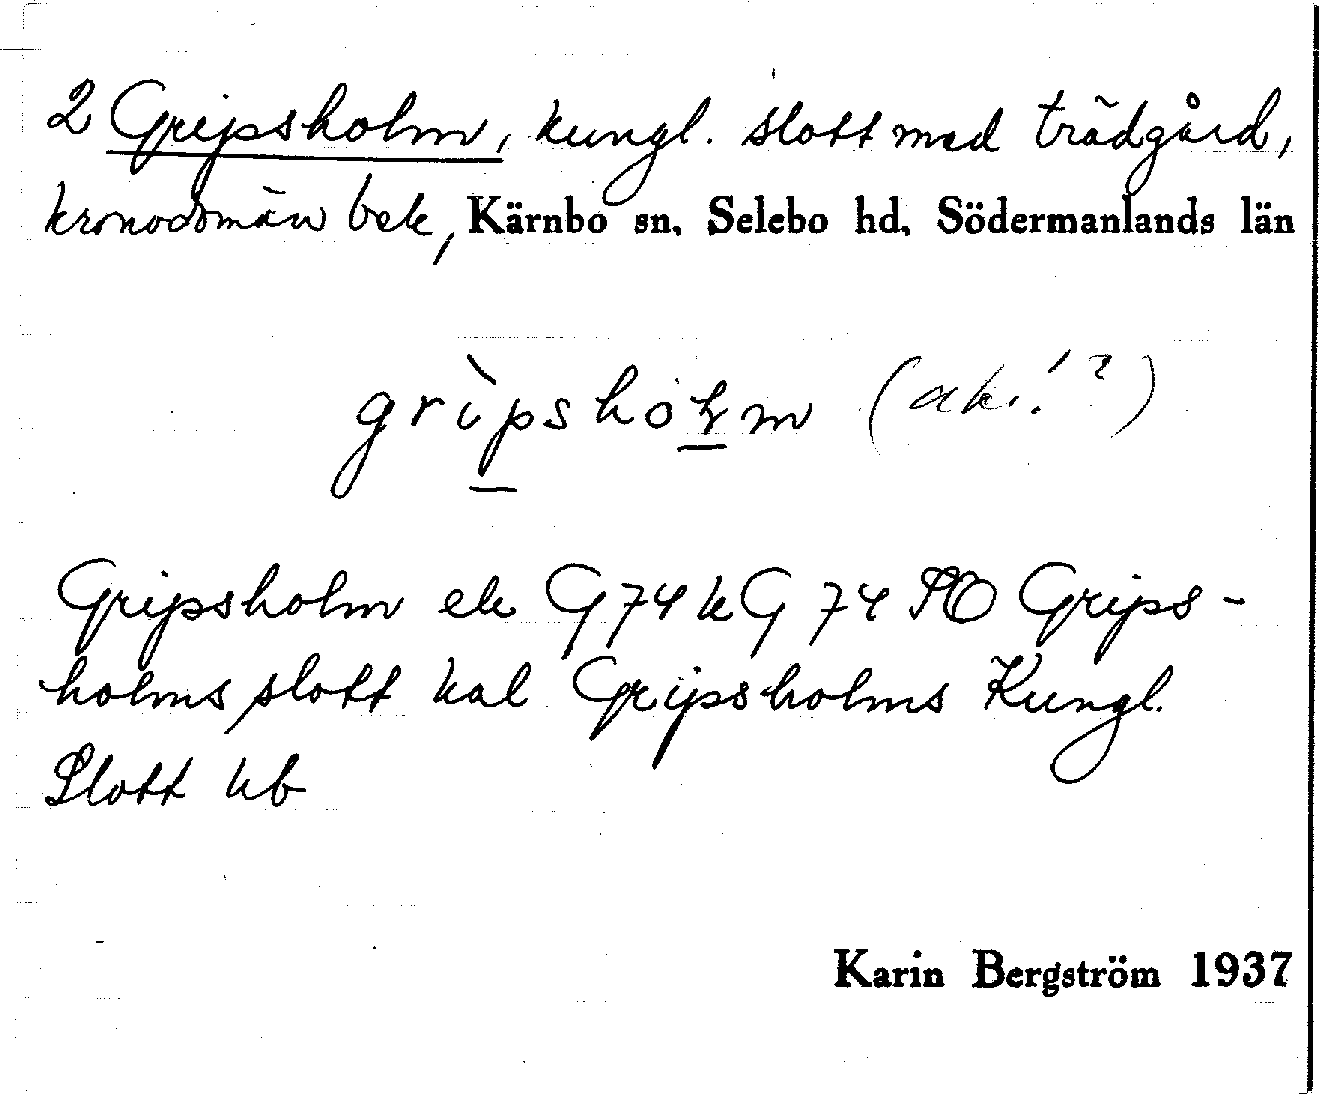 2 Gripsholm, kungl. slott med trädgård,
kronodomän bek, Kärnbo sn, Selebo hd, Södermanlands län
grìpshoɫm (ak.!?)
Gripsholm ek G 74 k G 74 PO Grips-
holms slott kal Gripsholms Kungl.
Slott kb
Karin Bergström 1937